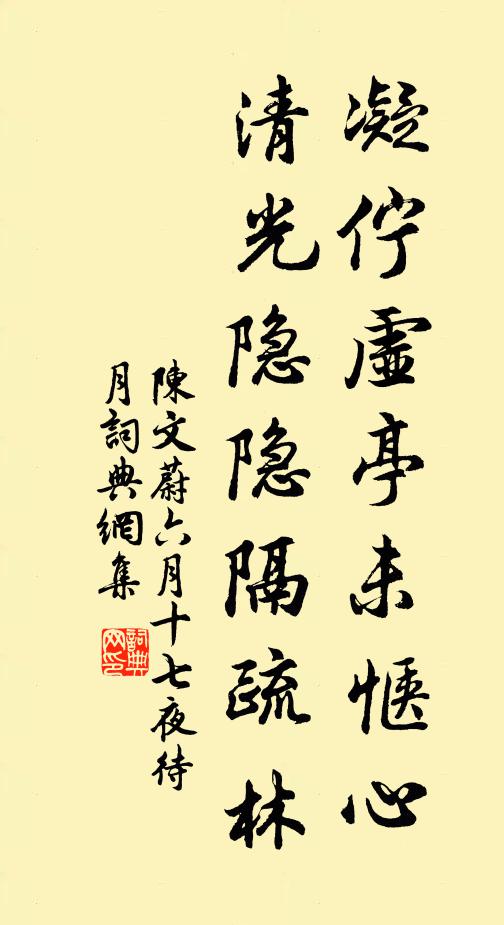 凝佇虛亭未愜心
清光隐隐隔疏林
陳文蔚六月十七夜待
月詞典網集
詞典
网印